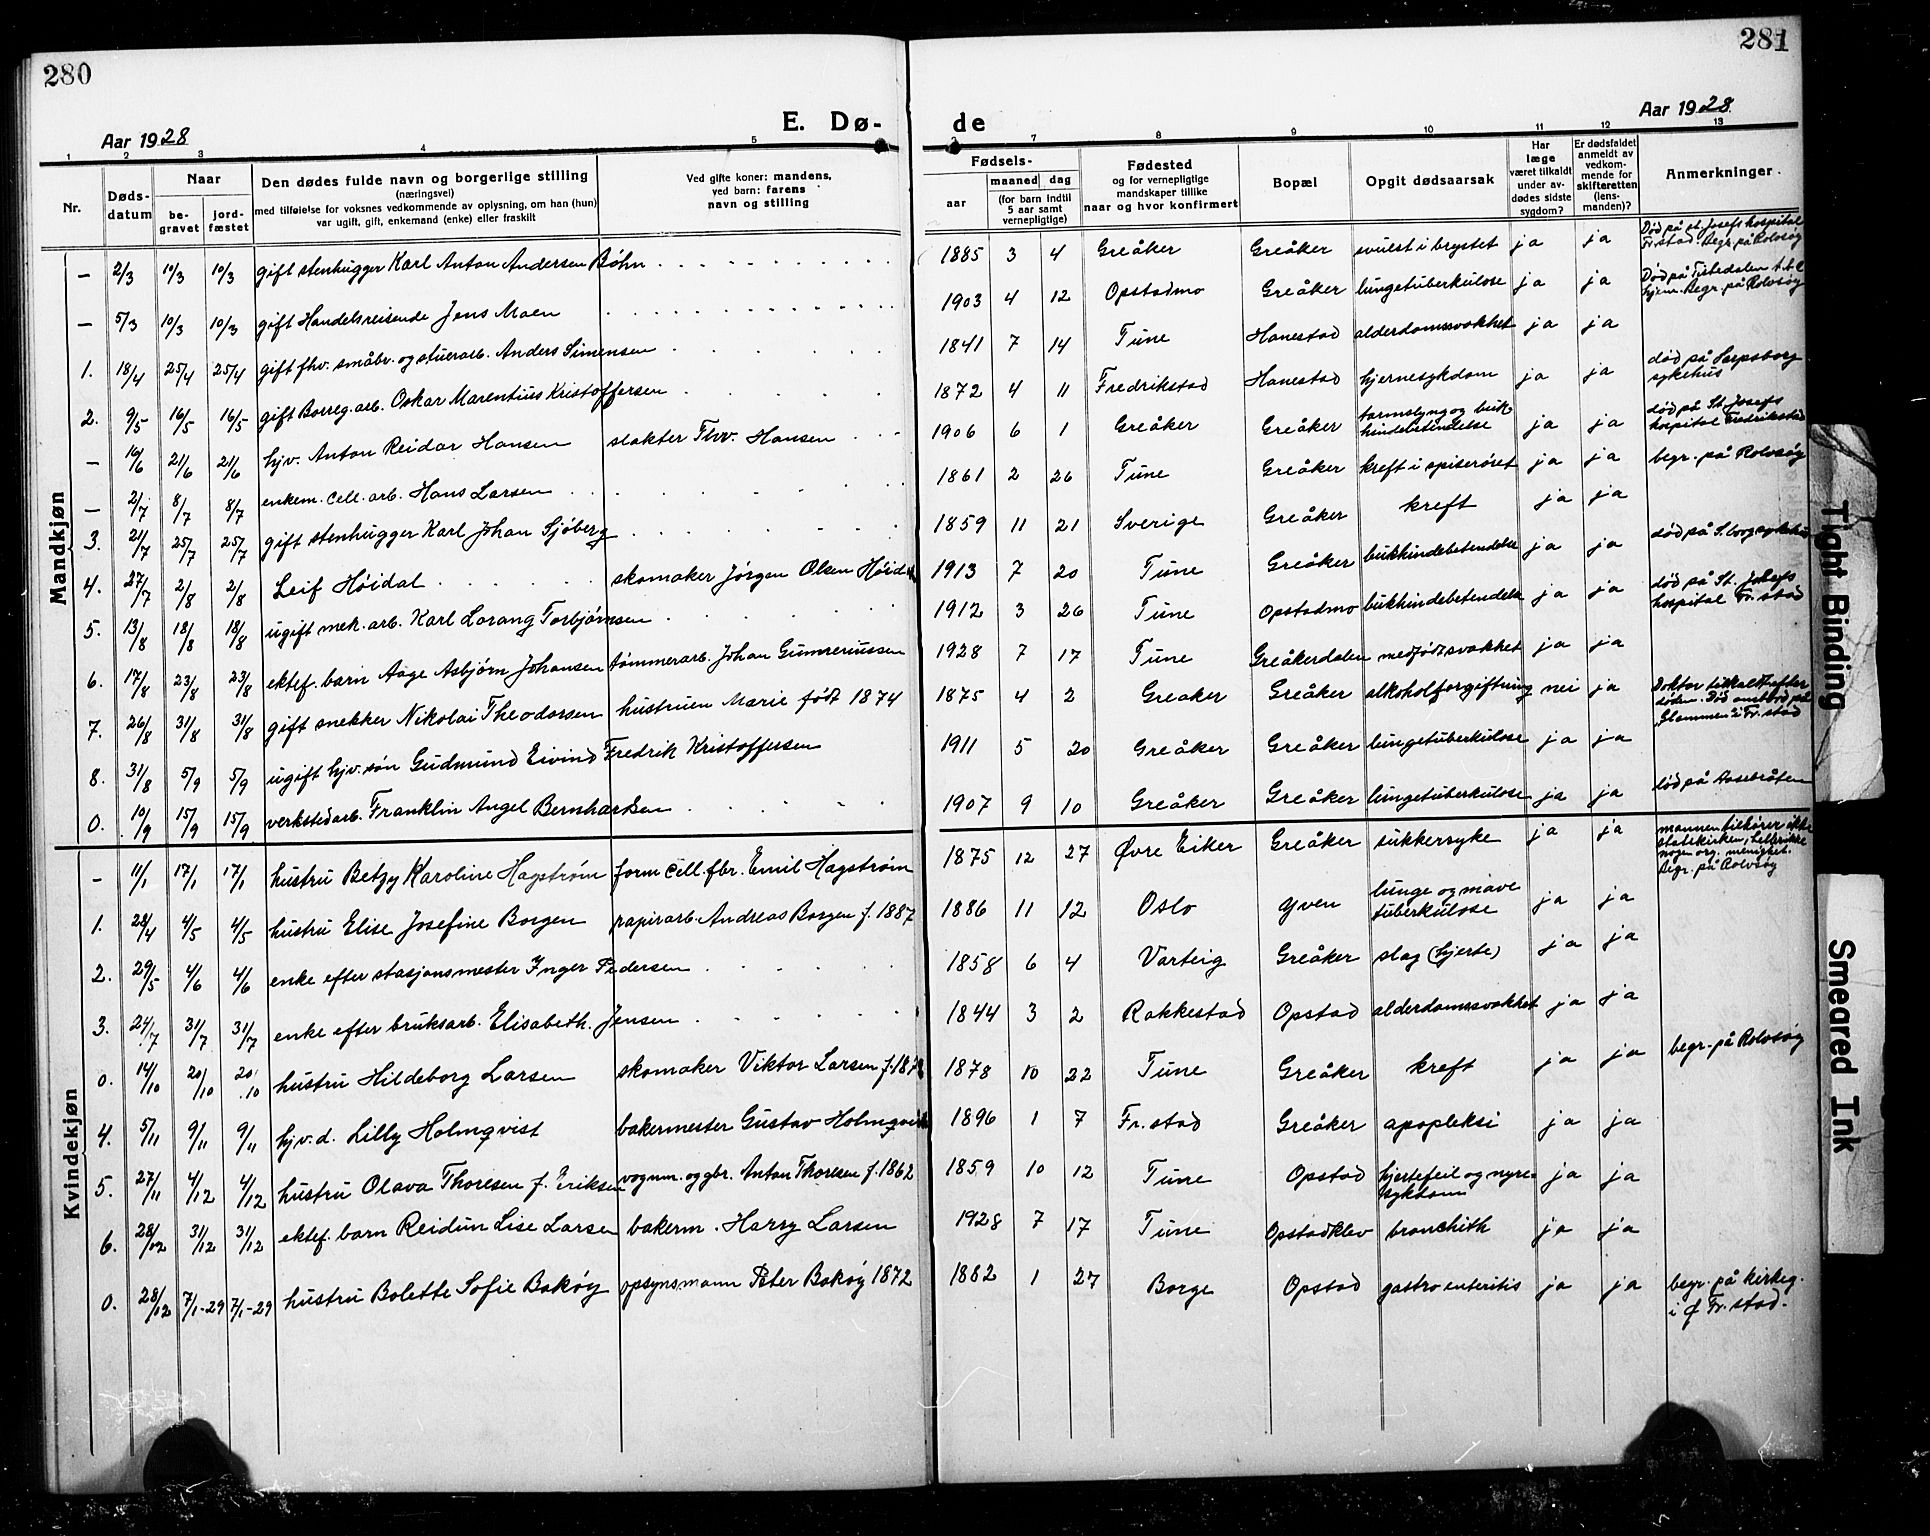 280
281
Aar 1928
E. Dø-
de
Aar 1928.
1 2 3 4 5 7 8 9 10 11 12 13
Nr.
Døds-datum
Naar
be-gravet
jord-fæstet
Den dødes fulde navn og borgerlige stilling
(næringsvei)
med tilføielse for voksnes vedkommende av oplysning, om han (hun)
var ugift, gift, enkemand (enke) eller fraskilt
Ved gifte koner: mandens,
ved barn: farens
navn og stilling
Fødsels-
aar
maaned
dag
(for barn indtil
5 aar samt
vernepligtige)
Fødested
og for vernepligtige
mandskaper tillike
naar og hvor konfirmert
Bopæl
Opgit dødsaarsak
Har
læge
været tilkaldt
under av-
dødes sidste
sygdom?
Er dødsfaldet
anmeldt av
vedkom-
mende for
skifteretten
(lens-
manden)?
Anmerkninger.
Mandkjøn
— 2/3 10/3 10/3 gift stenhugger Karl Anton Andersen Bøhn 1885 3 4 Greåker Greåker svulst i brystet ja ja Død på St. Josefs hospital Fr.stad. Begr. på Rolvsøy
— 5/3 10/3 10/3 gift Handelsreisende Jens Moen 1903 4 12 Opstadmo Greåker lungetuberkulose ja ja Død på Tistedalen t.b.c hjem. Begr. på Rolvsøy
1. 18/4 25/4 25/4 gift fhv. småbr. og stuerarb. Anders Simensen 1841 7 14 Tune Hanestad alderdomssvakhet ja ja
2. 9/5 16/5 16/5 gift Borreg. arb. Oskar Marentius Kristoffersen 1872 4 11 Fredrikstad Hanestad hjernesykdom ja ja død på Sarpsborg sykehus
— 16/6 21/6 21/6 hjv. Anton Reidar Hansen slakter Thv. Hansen 1906 6 1 Greåker Greåker tarmslyng og bukhindebetendelse ja ja død på St. Josefs hospital Fredrikstad
— 2/7 8/7 8/7 enkem. cell. arb. Hans Larsen 1861 2 26 Tune Greåker kreft i spiserøret ja ja begr. på Rolvsøy
3. 21/7 25/7 25/7 gift stenhugger Karl Johan Sjøberg 1859 11 21 Sverige Greåker kreft ja ja
4. 27/7 2/8 2/8 Leif Höidal skomaker Jørgen Olsen 1913 7 20 Tune Greåker bukhindebetendelse ja ja død på S.borg sykehus
5. 13/8 18/8 18/8 ugift mek. arb. Karl Lorang Torbjørnsen 1912 3 26 Tune Opstadmo bukhindebetendelse ja ja død på St. Josefs hospital Fr.stad
6. 17/8 23/8 23/8 ektef. barn Aage Asbjørn Johansen tømmerarb. Johan Gunneriussen 1928 7 17 Tune Greåkerdalen medfødt svakhet ja ja
7. 26/8 31/8 31/8 gift snekker Nikolai Theodorsen hustruen Marie født 1874 1875 4 2 Greaker Greåker alkoholforgiftning nei ja Doktor tilkaldt efter døden. Død ombord på „Glommen 2“ Fr.stad
8. 31/8 5/9 5/9 ugift hjv. søn Gudmund Eivind Fredrik Kristoffersen 1911 5 20 Greåker Greåker lungetuberkulose ja ja
0. 10/9 15/9 15/9 verkstedarb. Franklin Angel Bernhardsen 1907 9 10 Greåker Greåker lungetuberkulose ja ja død på Aasebråten
Kvindekjøn
— 11/1 17/1 17/1 hustru Betzy Karoline Hagstrøm form cell. fbr. Emil Hagstrøm 1875 12 27 Øvre Eiker Greåker sukkersyke ja ja mannen tilhører ikke statskirken, heller ikke nogen org. menighet. Begr. på Rolvsøy
1. 28/4 4/5 4/5 hustru Elise Josefine Borgen papirarb. Andreas Borgen f. 1887 1886 11 12 Oslo Yven lunge og mave tuberkulose ja ja
2. 29/5 4/6 4/6 enke efter stasjonsmester Inger Pedersen 1858 6 4 Varteig Greåker slag (hjerte) ja ja
3. 24/7 31/7 31/7 enke efter bruksarb. Elisabeth. Jensen 1844 3 2 Rakkestad Opstad alderdomssvakhet ja ja
0. 14/10 20/10 20/10 hustru Hildeborg Larsen skomaker Viktor Larsen 1878 10 22 Tune Greåker kreft ja ja begr. på Rolvsøy
4. 5/11 9/11 9/11 hjv. d. Lilly Holmqvist bakermester Gustav Holmqvist 1896 1 7 Fr.stad Greåker apopleksi ja ja
5. 27/11 4/12 4/12 hustru Olava Thoresen f. Eriksen vognm. og gbr. Anton Thoresen f. 1862 1859 10 12 Tune Opstad hjertefeil og nyresykdom ja ja
6. 28/12 31/12 31/12 ektef. barn Reidun Lise Larsen bakerm. Harry Larsen 1928 7 17 Tune Opstadklev bronchith ja ja
0. 28/12 7/1-29 7/1-29 hustru Bolette Sofie Bakøy opsynsmann Peter Bakøy 1872 1882 1 27 Borge Opstad gastroenteritis ja ja begr. på kirkeg. i Ø Fr.stad.
Tight Binding
Smeared Ink